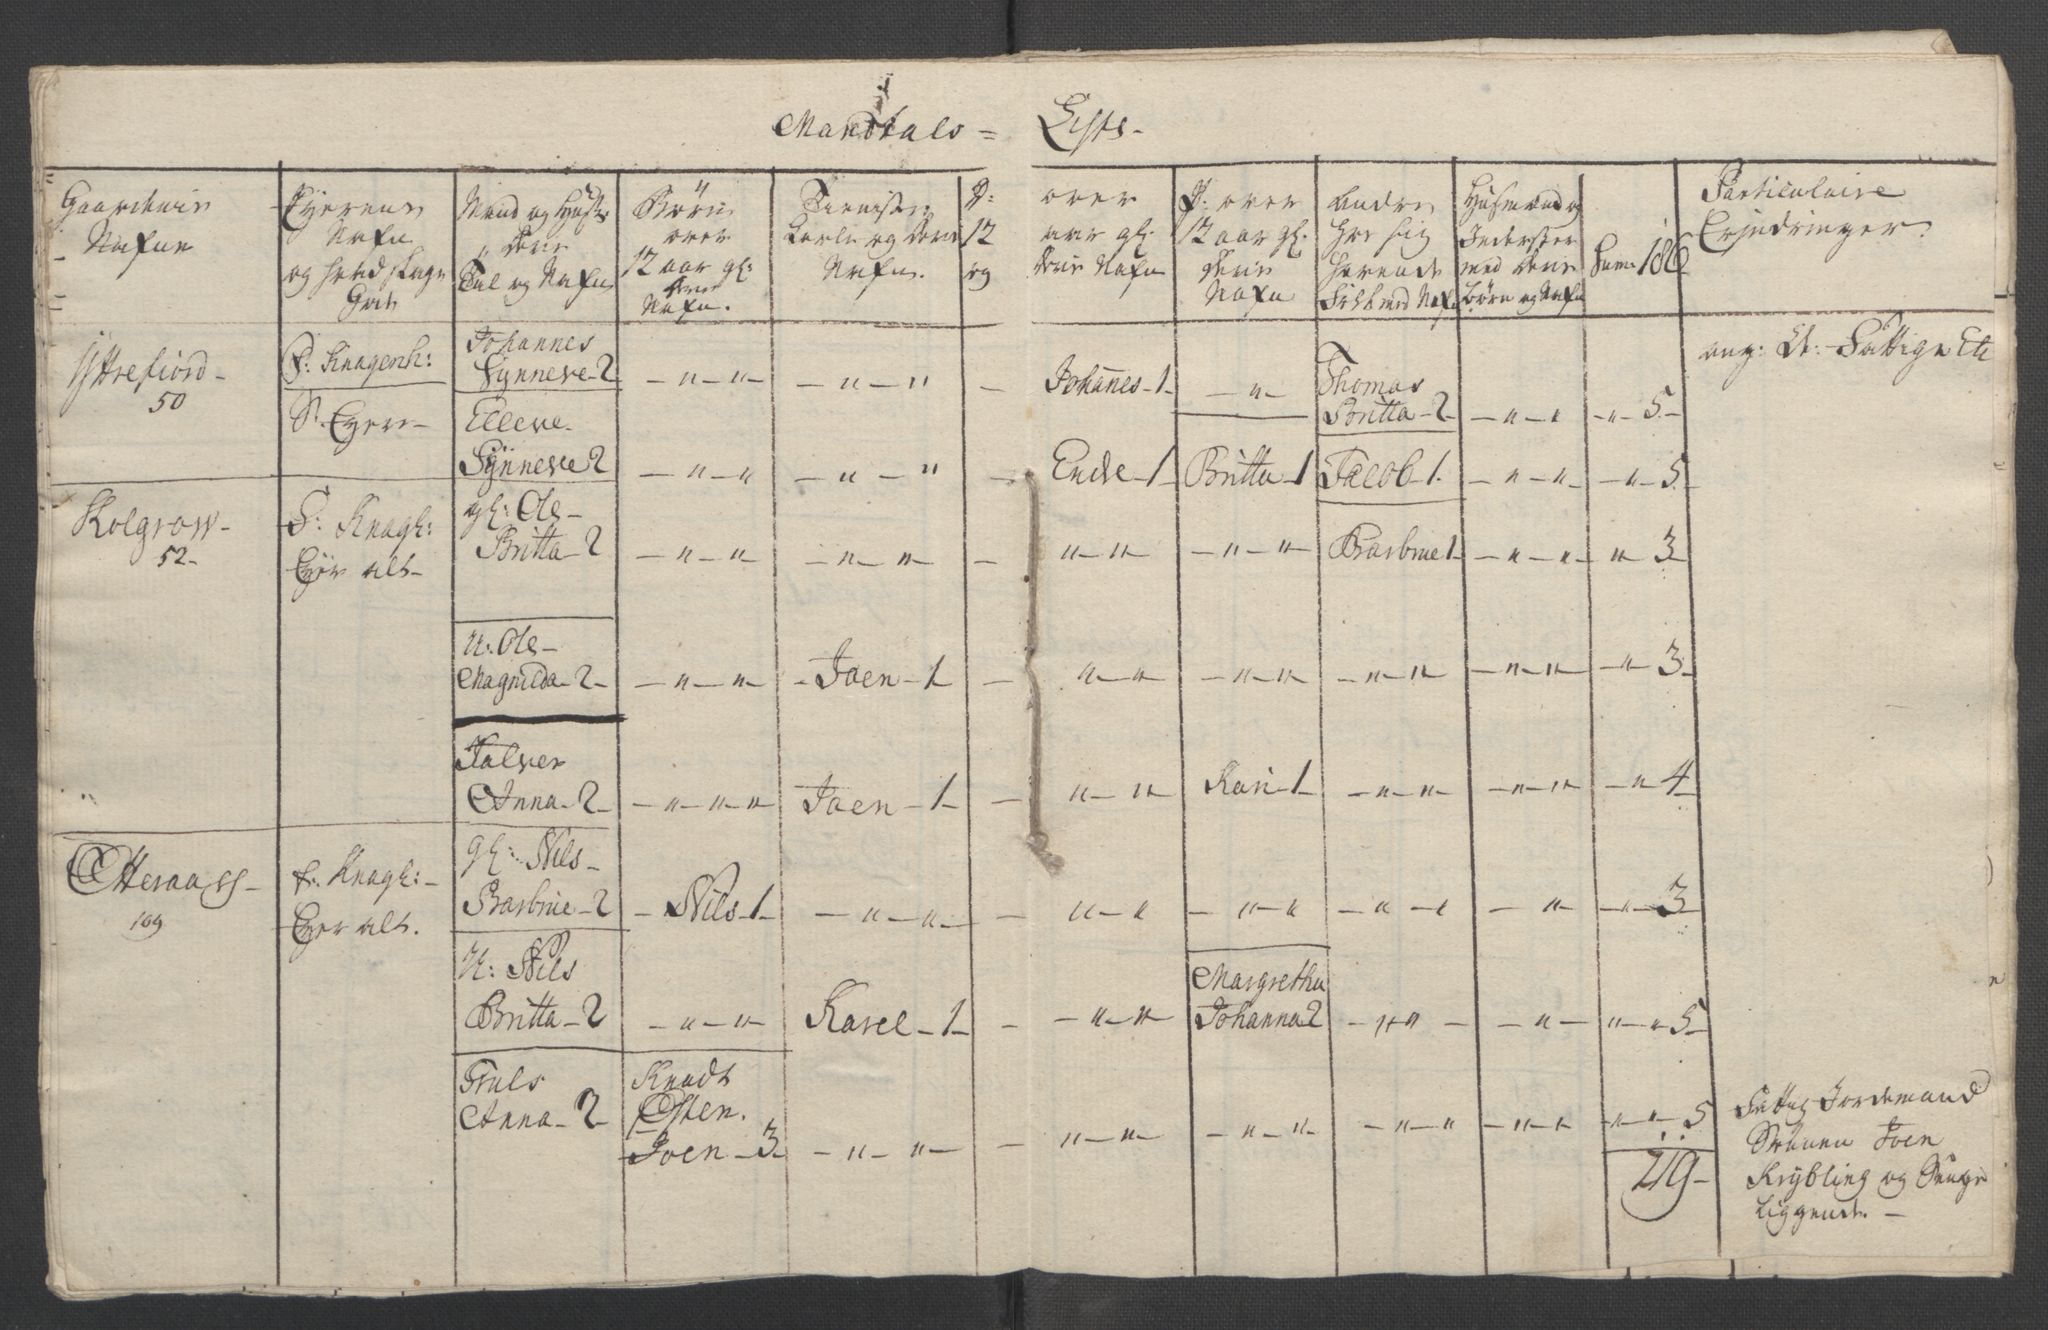 Mandtals = Liste-
Gaardenis Nafne
Eyerens Nafn og hvad slags Gods
Mand og Hustr deris Tal og Nafn
Börn over 12 aar gl: deris Nafn.
Tienister Karle og deris Nafn.
P: 12 og
over aar gl: deris Nafn
P: over 12 aar gl: deris Nafn
Andre Hos sig Havende Folk med Nafn
Husmænd og Inderster med deris börn og Nafn
Sum: 186
Particulaire Erindringer.
Yttrefiord- 50
P: Knagenh:
Johannes Synneve-2
-"-"
-"-"
Johannes-1-
-"-
Thomas Britta-2-
-"-"
-"-5-
ang: Et: Fattige
S. Eyere-
Elleve. Synneve 2
-"-"
-"-"
Ende-1-
Britta-1
Jacob-1.
-"-"-
-"-5-
Kolgrow- 52-
P: Knagh: Eyer alt-
gl: Ole- Britta-2
-"-"
-"-"
"-"
-"-"
Barbrue 1-
-"-"-
" 3-
U: Ole- Magnilda-2-
-"-"
-Joen-1
"-"
-"-"-
-"-"
-"-"
-"-3-
Halver Anna-2-
-"-"-"
Joen-1-
"-"
Kari-1-
-"-"-
-"-"-
-"4-
Otteraass- 109
P: Knagh:- Eyer alt.
gl: Nils- Barbrue-2
-Nils-1-
-"-"
"-"
-"-"
-"-"
-"
-"-3-
U: Nils Britta-2
-"-"
Karel-1-
-"-"
Margretha Johanna 2
-"-"-
-"-
"-"5-
Truls Anna-2-
Knudt Östen. Joen-3-
-"-"
"-"
-"-"-
-"-"
-"-"
-"-"5
29-
Fattig Jordemand Joen Krybling og Senge liggende.-